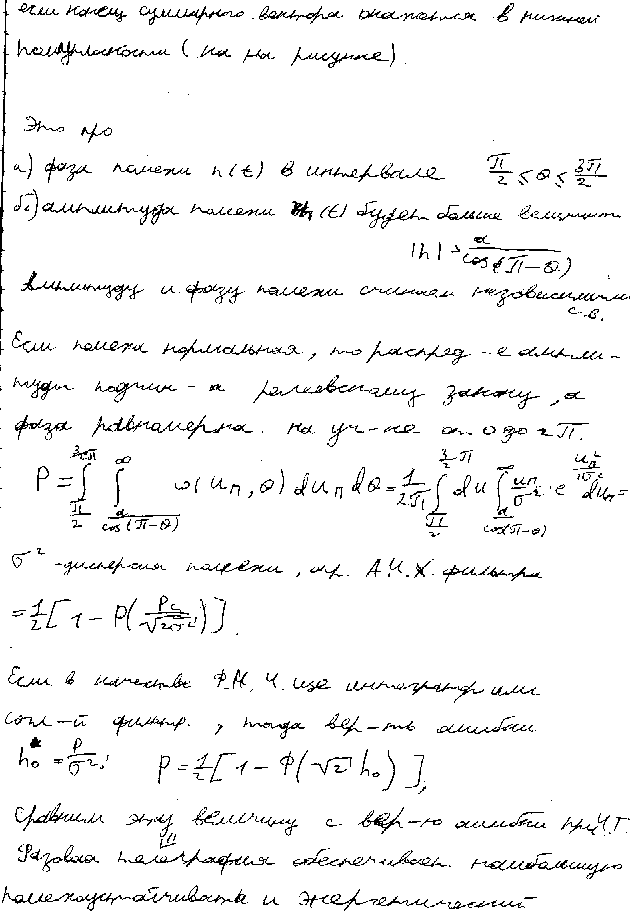 если конец суммарного вектора окажется в нижней
полуплоскости (на на рисунке)
Это про
а) фаза помехи n(t) в интервале π/2 ≤ θ ≤ 3π/2
б) амплитуда помехи n(t) будет больше величины
|n| > a/cos(π-θ)
Амплитуду и фазу помехи считаем независимыми
с.в.
Если помеха нормальная, то распред-е ампли-
туды подчин-я релеевскому закону, а
фаза равномерна на уч-ке от 0 до 2π.
P = ∫∫ ω(u_п, θ) du_п dθ = 1/2π ∫ du ∫ u_п/σ² · e du_п =
σ² - дисперсия помехи, А.Ч.Х. фильтра
= 1/2 [1 - P(Pc/√2σ²)]
Если в качестве Ф.Н.Ч. исе интегратор или
согл-й фильтр, тогда вер-ть ошибки
h₀ = P/σ²; P = 1/2 [1 - Ф(√2 h₀)],
Сравним эту величину с вер-ю ошибки при Ч.Т.
Фазовая телеграфия обеспечивает наибольшую
помехоустойчивость и энергетический